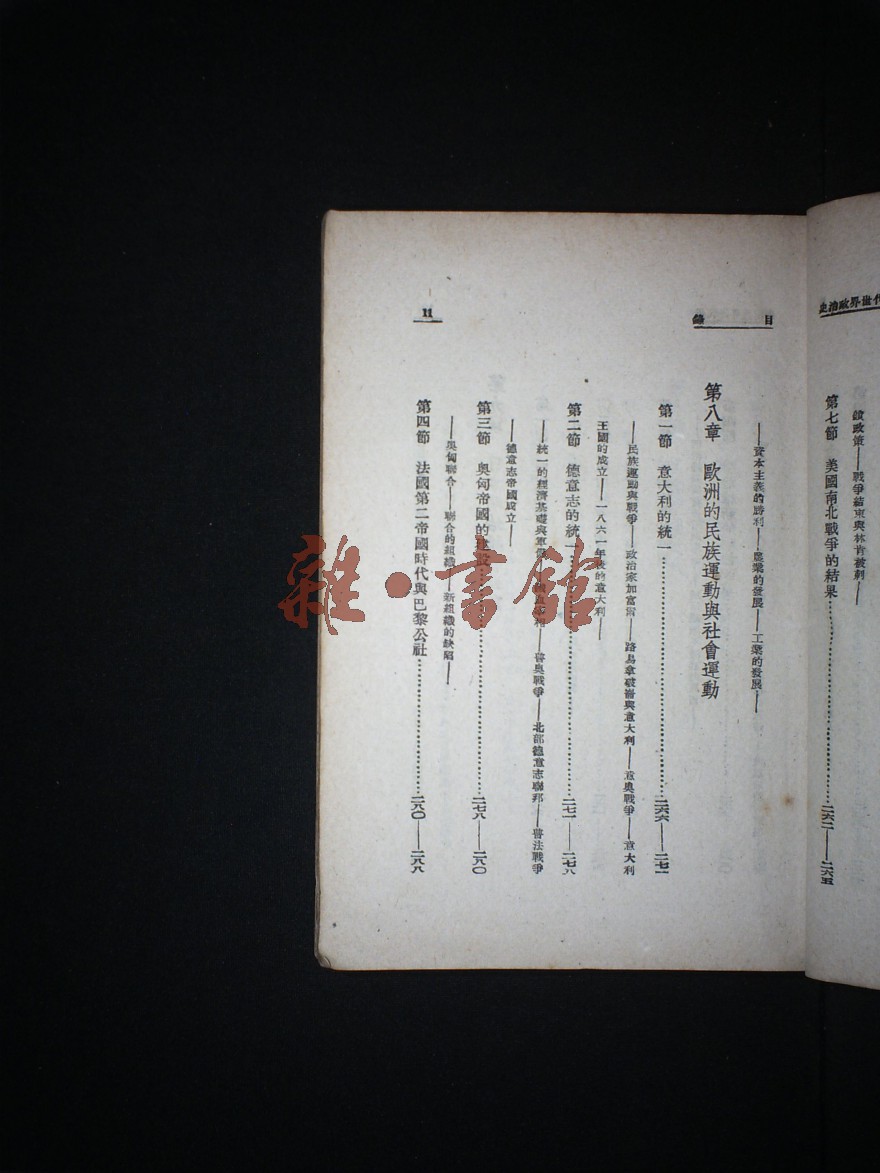 代世界政治史
放政策——戰爭結束與林肯被刺——
第七節　美國南北戰爭的結果…………二六二——二六五
目錄
——資本主義的勝利——農業的發展——工業的發展——
第八章　歐洲的民族運動與社會運動
第一節　意大利的統一…………二六六——二七一
——民族運動與戰爭——政治家加富爾——路易拿破崙與意大利——意奧戰爭——意大利
王國的成立——一八六一年後的意大利——
第二節　德意志的統一…………二七一——二七八
——統一的經濟基礎與軍備——鐵血宰相——普奧戰爭——北部德意志聯邦——普法戰爭
——德意志帝國成立——
第三節　奧匈帝國的建設…………二七八——二八〇
——奧匈聯合——聯合的組織——新組織的缺陷——
第四節　法國第二帝國時代與巴黎公社…………二八〇——二八八
11
雜·書館